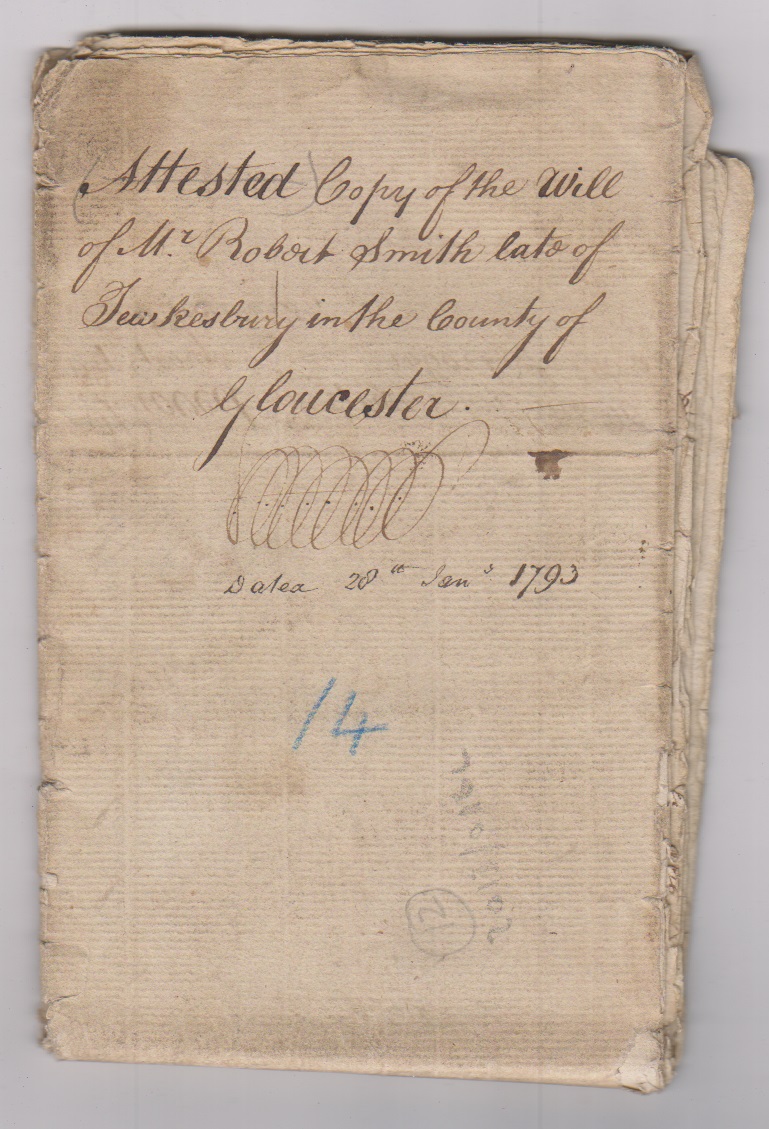 (Attested) Copy of the Will
of Mr. Robert Smith late of
Tewkesbury in the County of
Gloucester.
Dated 28th Jany 1793
14
12